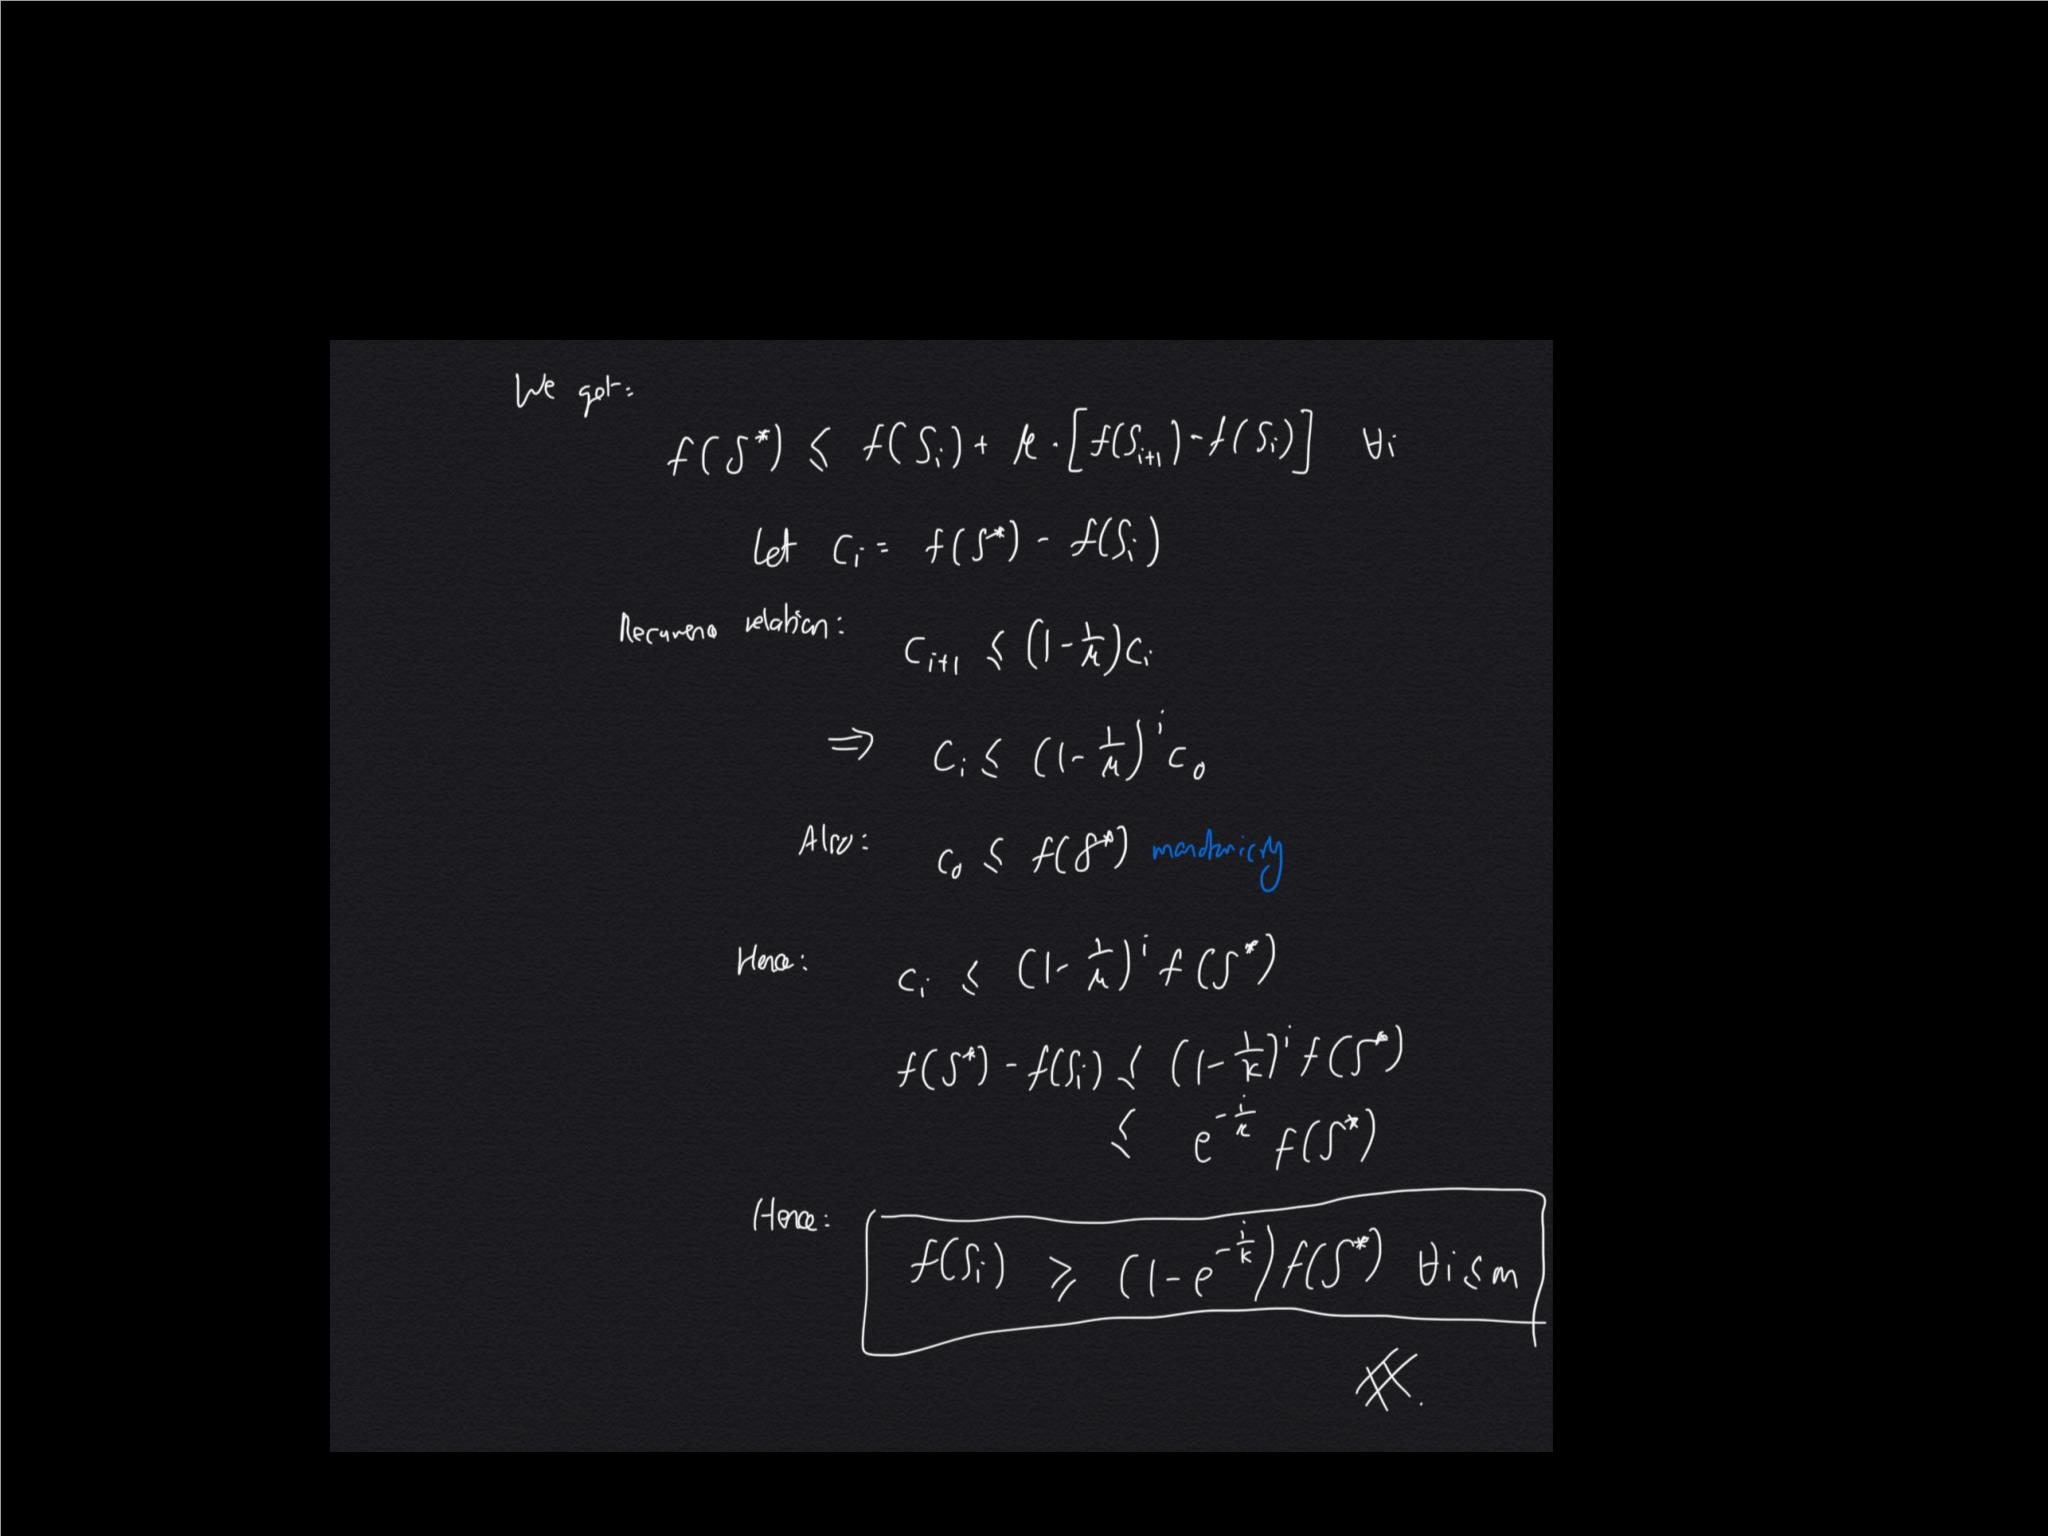 We get:
f(S*) ≤ f(Si) + k · [f(Si+1) - f(Si)] ∀i
Let ci = f(S*) - f(Si)
relation: ci+1 ≤ (1 - 1/k) ci
⇒ ci ≤ (1 - 1/k)^i c0
Also: c0 ≤ f(S*)
Hence: ci ≤ (1 - 1/k)^i f(S*)
f(S*) - f(Si) ≤ (1 - 1/k)^i f(S*)
≤ e^(-i/k) f(S*)
Hence: f(Si) ≥ (1 - e^(-i/k)) f(S*) ∀i ≤ m
#.